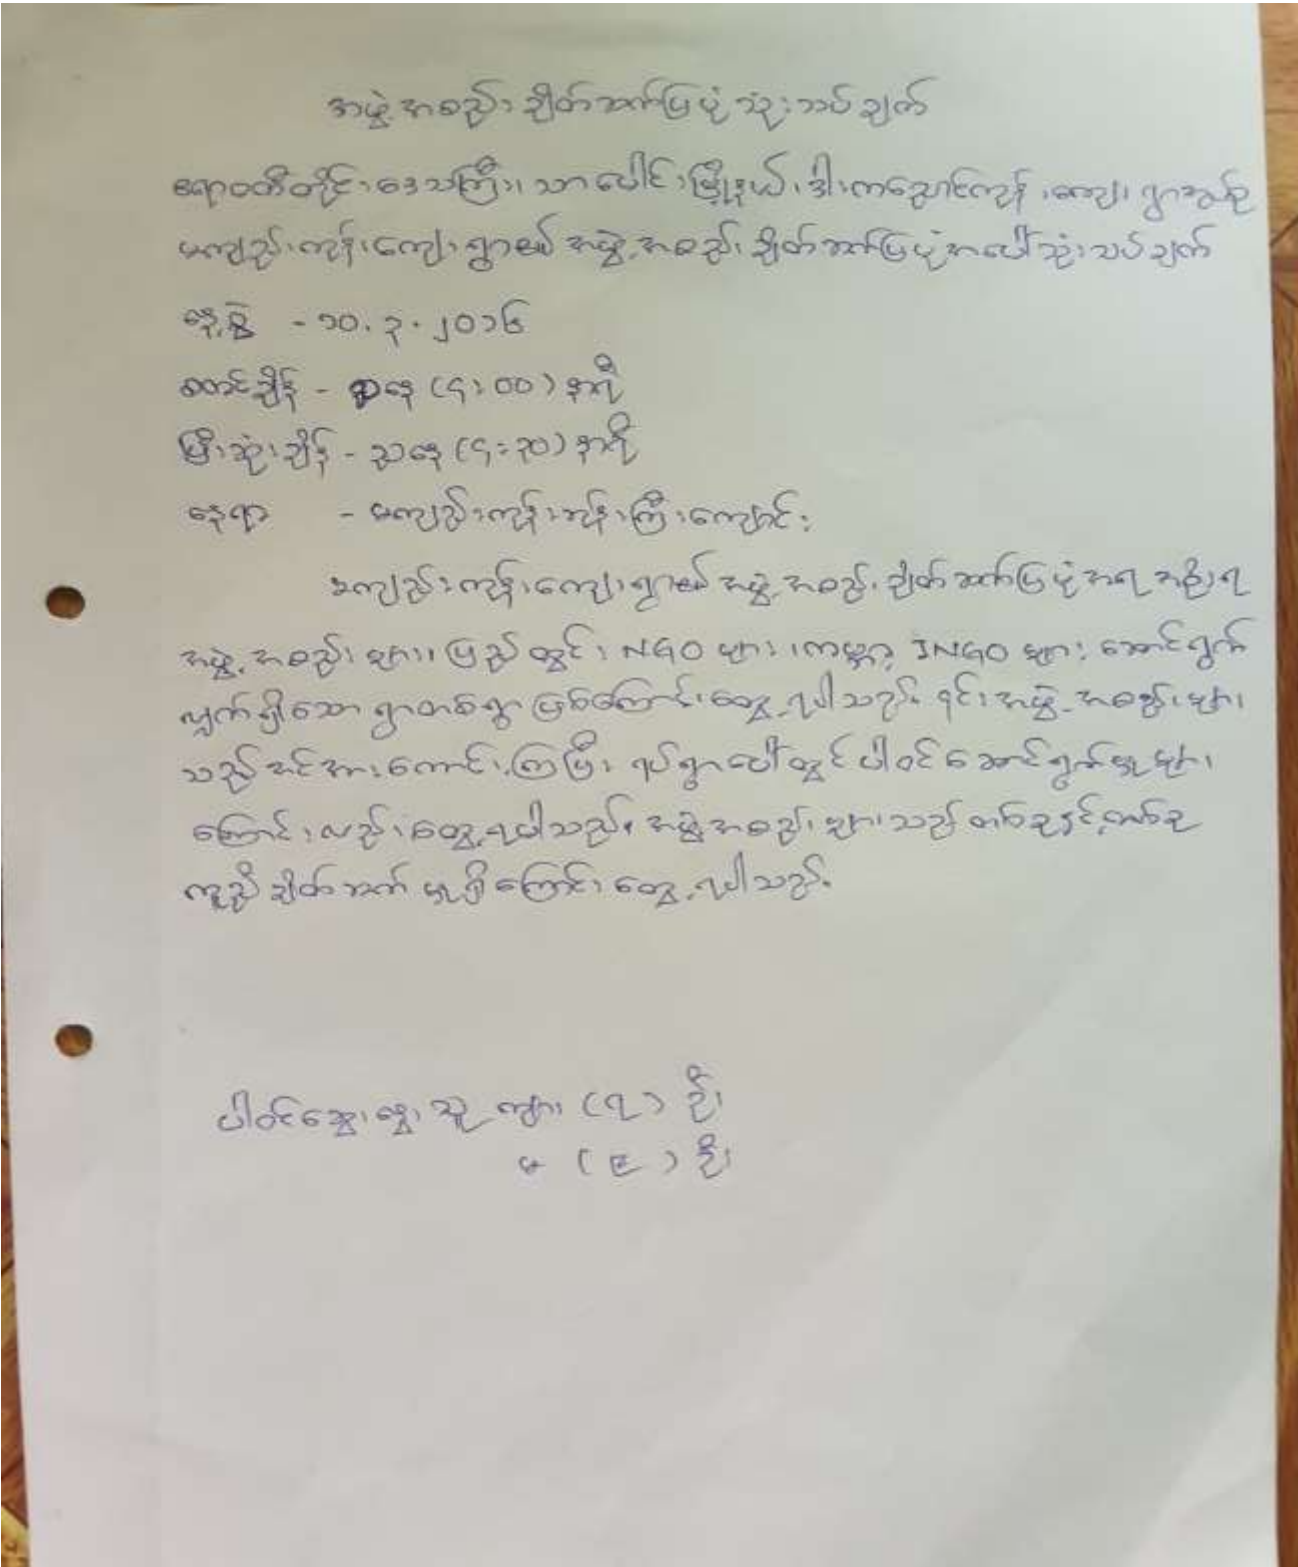 အဖွဲ့အစည်း ချိတ်ဆက်ပြပုံ သုံးသပ်ချက်
ဧရာဝတီတိုင်းဒေသကြီး၊ သာပေါင်းမြို့နယ်၊ ဒါးကညောင်ကျွန်းကျေးရွာအုပ်စု
မကျည်းကျွန်းကျေးရွာ၏ အဖွဲ့အစည်း ချိတ်ဆက်ပြပုံအပေါ် သုံးသပ်ချက်
နေ့စွဲ - ၁၀.၃.၂၀၁၆
စတင်ချိန် - ညနေ (၄:၀၀) နာရီ
ပြီးဆုံးချိန် - ညနေ (၄:၃၀) နာရီ
နေရာ - မကျည်းကျွန်းဘုန်းကြီးကျောင်း
မကျည်းကျွန်းကျေးရွာ၏ အဖွဲ့အစည်း ချိတ်ဆက်ပြပုံအရ အစိုးရ
အဖွဲ့အစည်းများ၊ ပြည်တွင်း NGO များ၊ ကမ္ဘာ့ INGO များ ဆောင်ရွက်
လျက်ရှိသော ရွာတစ်ရွာ ဖြစ်ကြောင်း တွေ့ရပါသည်။ ၎င်းအဖွဲ့အစည်းများ
သည် အင်အားကောင်းကြပြီး ရပ်ရွာပေါ်တွင် ပါဝင်ဆောင်ရွက်မှုများ
ကြောင်းလည်း တွေ့ရပါသည်။ အဖွဲ့အစည်းများသည် တစ်ခုနှင့်တစ်ခု
ကူညီချိတ်ဆက်မှုရှိကြောင်း တွေ့ရပါသည်။
ပါဝင်ဆွေးနွေးသူ ကျား (၇) ဦး
မ ( ) ဦး